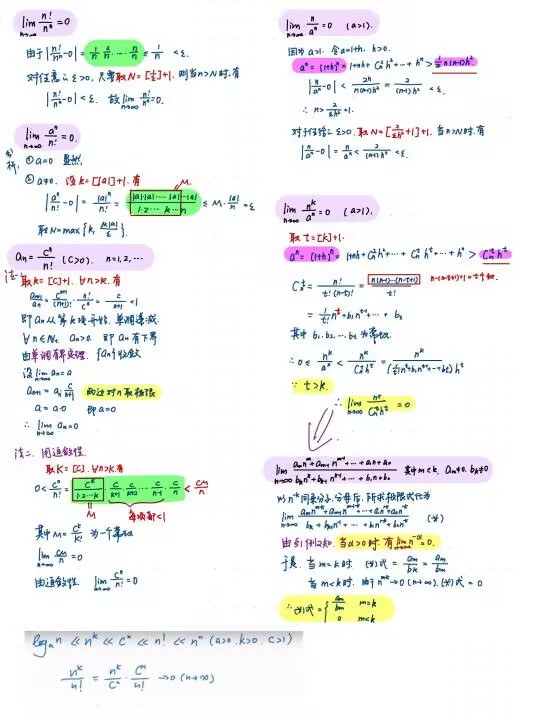 lim n→∞ n!/nⁿ = 0
由于 |n!/nⁿ - 0| = 1/n · 2/n ····· n/n ≤ 1/n < ε.
对任意 ε>0, 只需取N = [1/ε]+1. 则当n>N时, 有
|n!/nⁿ - 0| < ε. 故 lim n→∞ n!/nⁿ = 0.
lim n→∞ aⁿ/n! = 0.
分析.
① a=0 显然
② a≠0. 设 k = [|a|]+1. 有 M.
|aⁿ/n! - 0| = |a|ⁿ/n! = |a|·|a|···|a|···|a| / 1·2···k···n ≤ M·|a|/n = ε
取 N = max{k, M|a|/ε}.
aₙ = cⁿ/n! (c>0). n=1,2,···
法一
取 k = [c]+1, ∀n>k. 有
aₙ₊₁/aₙ = cⁿ⁺¹/(n+1)! · n!/cⁿ = c/n+1 <1
即 aₙ 从第k项开始, 单调递减.
∀n∈N₊ aₙ>0. 即 aₙ 有下界
由单调有界定理. {aₙ}收敛
设 lim n→∞ aₙ = a
aₙ₊₁ = aₙ c/n+1 两边对n取极限
a = a·0 即 a=0
∴ lim n→∞ aₙ = 0
法二. 用迫敛性.
取 K = [c]. ∀n>k. 有
0 < cⁿ/n! = cᵏ/1·2···k · c/k+1 · c/k+2 ··· c/n-1 · c/n < cM/n
M 每项都<1
其中 M = cᵏ/k! 为一个常数
lim n→∞ cM/n = 0
由迫敛性. lim n→∞ cⁿ/n! = 0
lim n→∞ n/aⁿ = 0 (a>1).
因为 a>1, 令 a=1+h, h>0.
aⁿ = (1+h)ⁿ = 1+nh + Cₙ²h² + ··· + hⁿ > ½n(n-1)h².
|n/aⁿ - 0| < 2n/n(n-1)h² = 2/(n-1)h² < ε.
∴ n > 2/εh² + 1.
对于任给 ε>0. 取N = [2/εh² + 1] + 1. 当n>N时. 有
|n/aⁿ - 0| = n/aⁿ < 2/(n-1)h² < ε.
lim n→∞ nᵏ/aⁿ = 0 (a>1).
取 t = [k]+1.
aⁿ = (1+h)ⁿ = 1+nh + Cₙ²h² + ··· + Cₙᵗhᵗ + ··· + hⁿ > Cₙᵗhᵗ
Cₙᵗ = n!/t!(n-t)! = n(n-1)···(n-t+1)/t! n-(n-t+1)+1 = t个数.
= 1/t! nᵗ + b₁nᵗ⁻¹ + ··· + bₜ
其中 b₁, b₂, ··· bₜ 为常数.
∴ 0 ≤ nᵏ/aⁿ < nᵏ/Cₙᵗhᵗ = nᵏ/(1/t! nᵗ + b₁nᵗ⁻¹ + ··· + bₜ)hᵗ
∵ t>k.
∴ lim n→∞ nᵏ/Cₙᵗhᵗ = 0
lim n→∞ aₘnᵐ + aₘ₋₁nᵐ⁻¹ + ··· + a₁n + a₀ / bₖnᵏ + bₖ₋₁nᵏ⁻¹ + ··· + b₁n + b₀ 其中 m≤k. aₘ≠0. bₖ≠0
以 n⁻ᵏ 同乘分子, 分母后. 所求极限式化为
lim n→∞ aₘnᵐ⁻ᵏ + aₘ₋₁nᵐ⁻¹⁻ᵏ + ··· + a₁n¹⁻ᵏ + a₀n⁻ᵏ / bₖ + bₖ₋₁n⁻¹ + ··· + b₁n¹⁻ᵏ + b₀n⁻ᵏ (*)
当 α>0 时. 有 lim n→∞ n⁻ᵅ = 0.
于是. 当 m=k 时. (*)式 = aₘ/bₖ = aₘ/bₘ
当 m<k 时. 由于 nᵐ⁻ᵏ→0 (n→∞). (*)式 = 0
∴ (*)式 = { aₘ/bₘ . m=k
0 m<k
logₐn ≪ nᵏ ≪ cⁿ ≪ n! ≪ nⁿ (a>0. k>0. c>1)
nᵏ/n! = nᵏ/cⁿ · cⁿ/n! → 0 (n→∞)